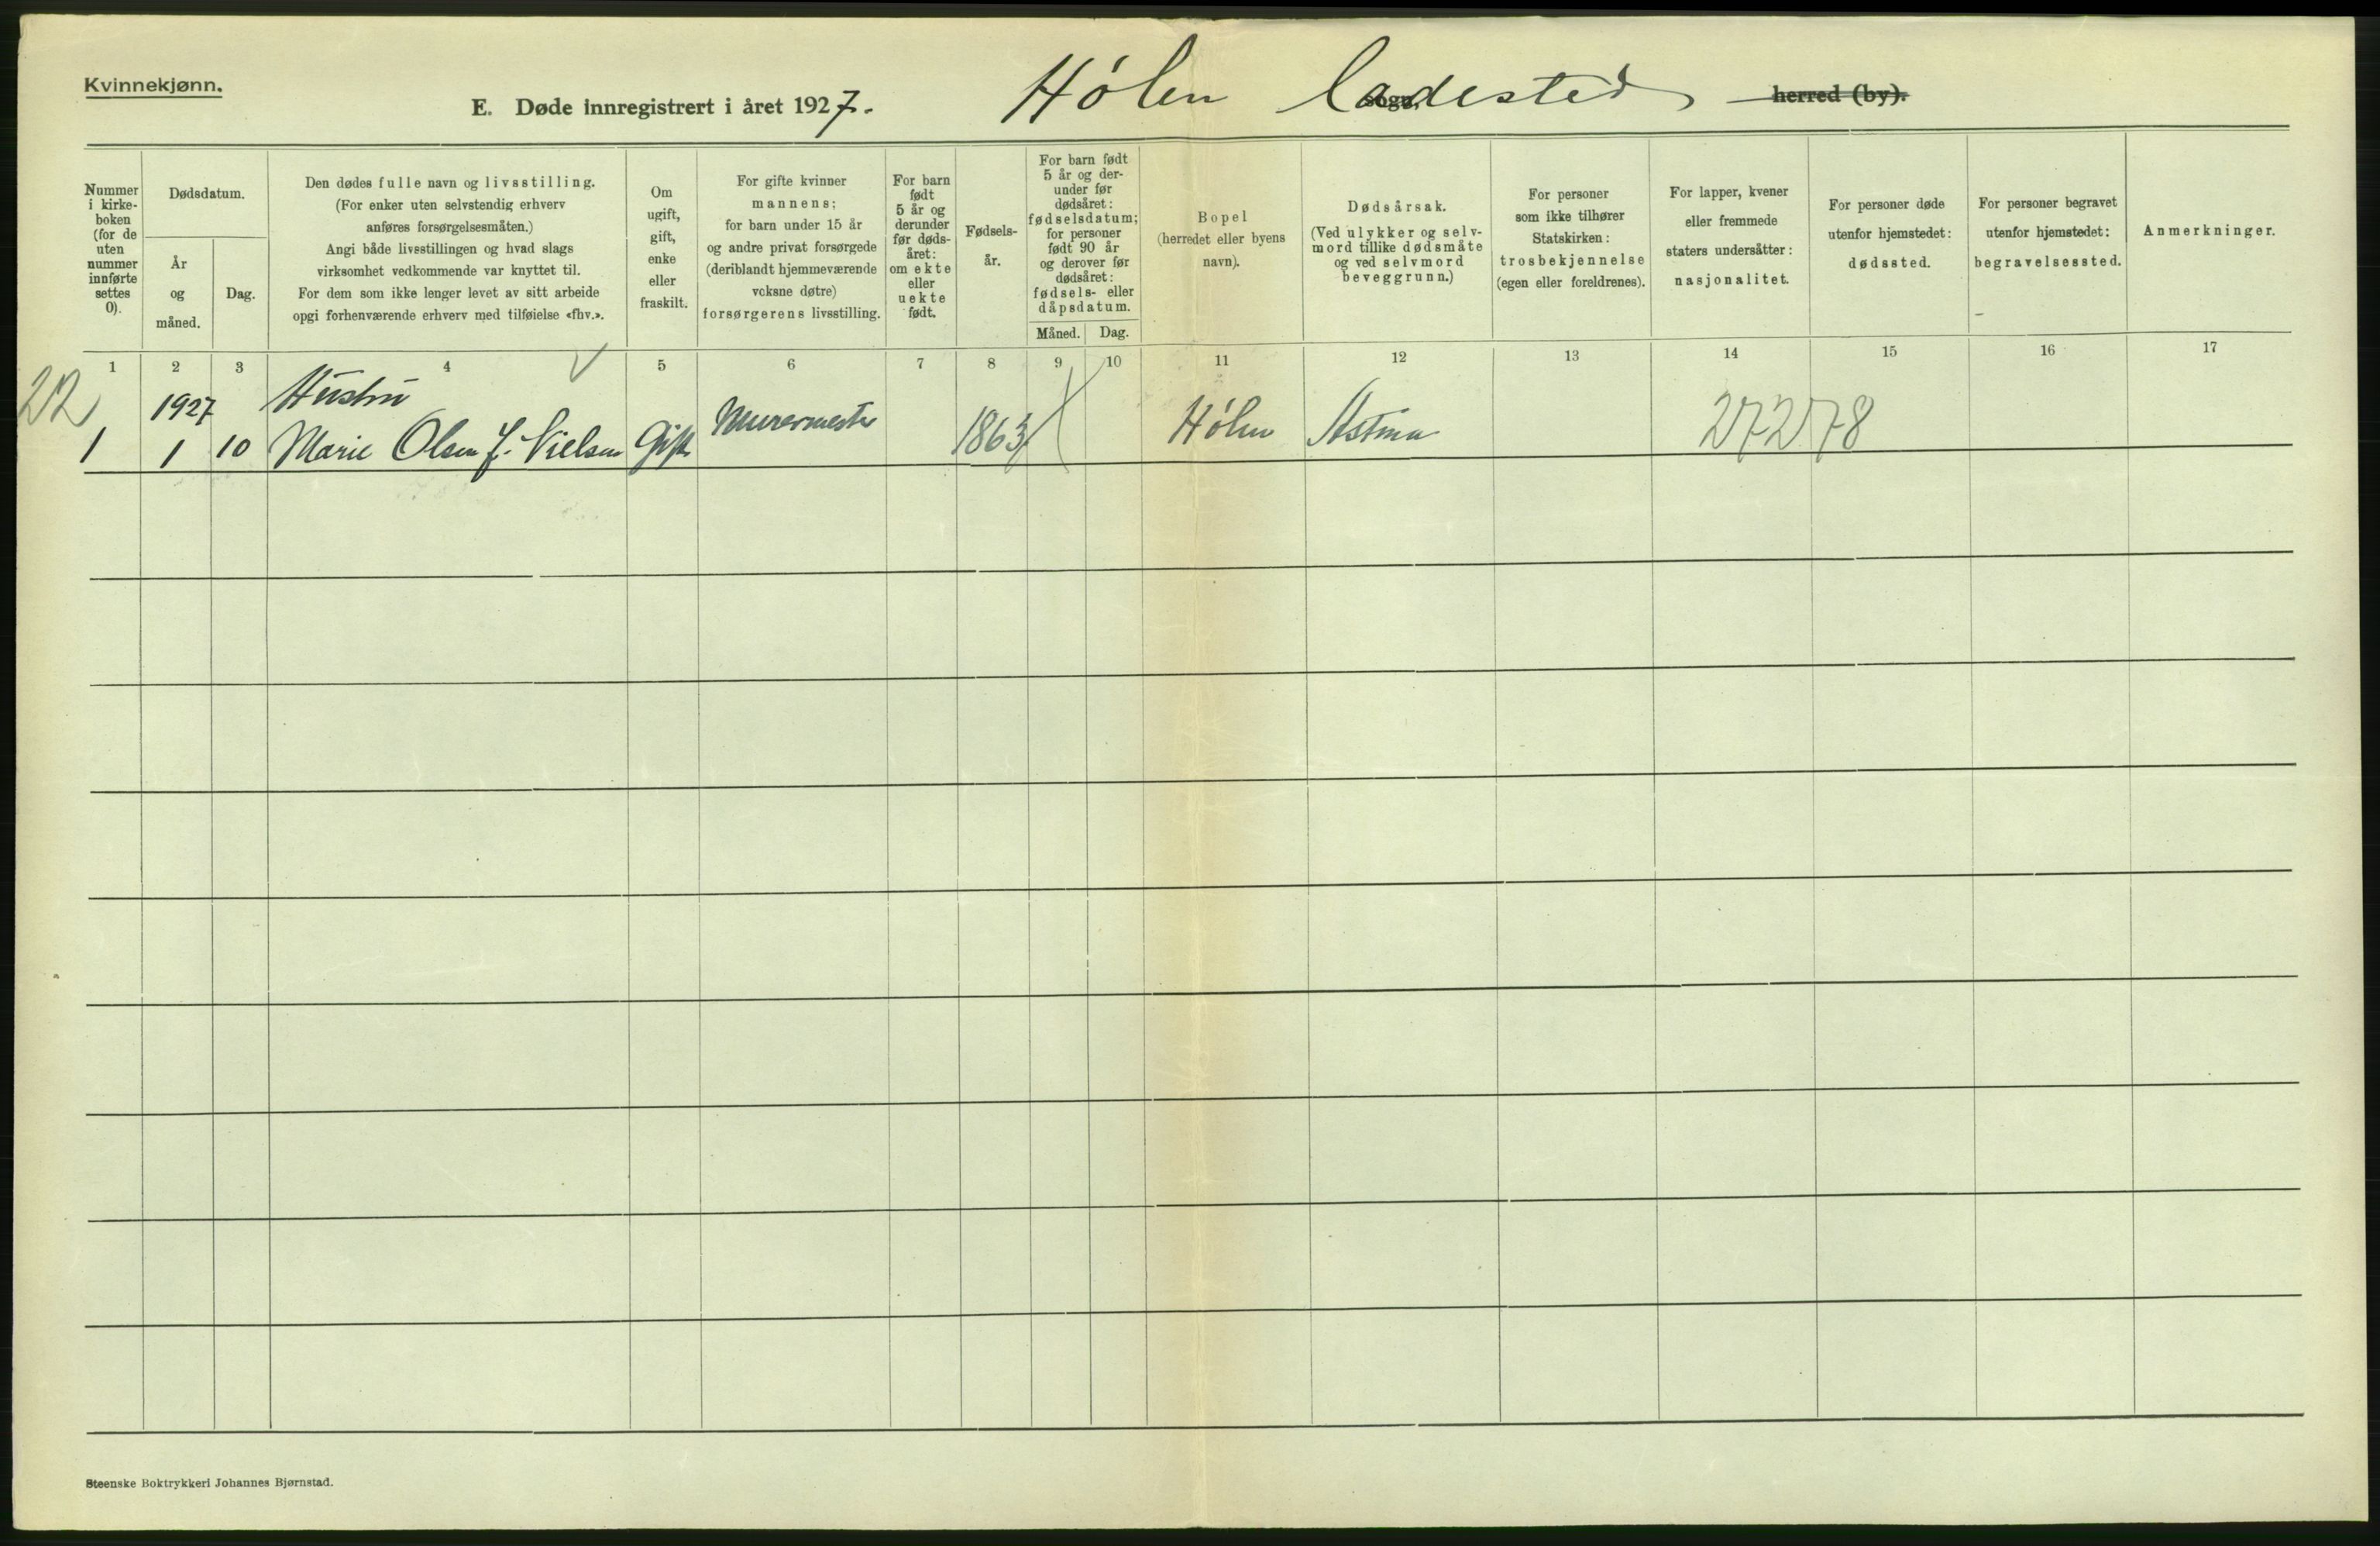 Kvinnekjønn.
E. Døde innregistrert i året 1927.
Hølen ladested
herred (by).
Nummer i kirke- boken (for de uten nummer innførte settes 0).
Dødsdatum.
År og måned.
Dag.
Den dødes fulle navn og livsstilling.
(For enker uten selvstendig erhverv
anføres forsørgelsesmåten.)
Angi både livsstillingen og hvad slags
virksomhet vedkommende var knyttet til.
For dem som ikke lenger levet av sitt arbeide
opgi forhenværende erhverv med tilføielse «fhv.».
Om
ugift,
gift,
enke
eller
fraskilt.
For gifte kvinner
mannens;
for barn under 15 år
og andre privat forsørgede
(deriblandt hjemmeværende
voksne døtre)
forsørgerens livsstilling.
For barn
født
5 år og
derunder
før døds-
året:
om ekte
eller
uekte
født.
Fødsels-
år.
For barn født
5 år og der-
under før
dødsåret:
fødselsdatum;
for personer
født 90 år
og derover før
dødsåret:
fødsels- eller
dåpsdatum.
Måned. Dag.
Bopel
(herredet eller byens
navn).
Dødsårsak.
(Ved ulykker og selv-
mord tillike dødsmåte
og ved selvmord
beveggrunn.)
For personer
som ikke tilhører
Statskirken:
trosbekjennelse
(egen eller foreldrenes).
For lapper, kvener
eller fremmede
staters undersåtter:
nasjonalitet.
For personer døde
utenfor hjemstedet:
dødssted.
For personer begravet
utenfor hjemstedet:
begravelsessted.
Anmerkninger.
1 2 3 4 5 6 7 8 9 10 11 12 13 14 15 16 17
22
1927 Hustru
1 1 10 Marie Olsen f. Nielsen Gift Murermester 1863 Hølen Astma 27278
Steenske Boktrykkeri Johannes Bjørnstad.